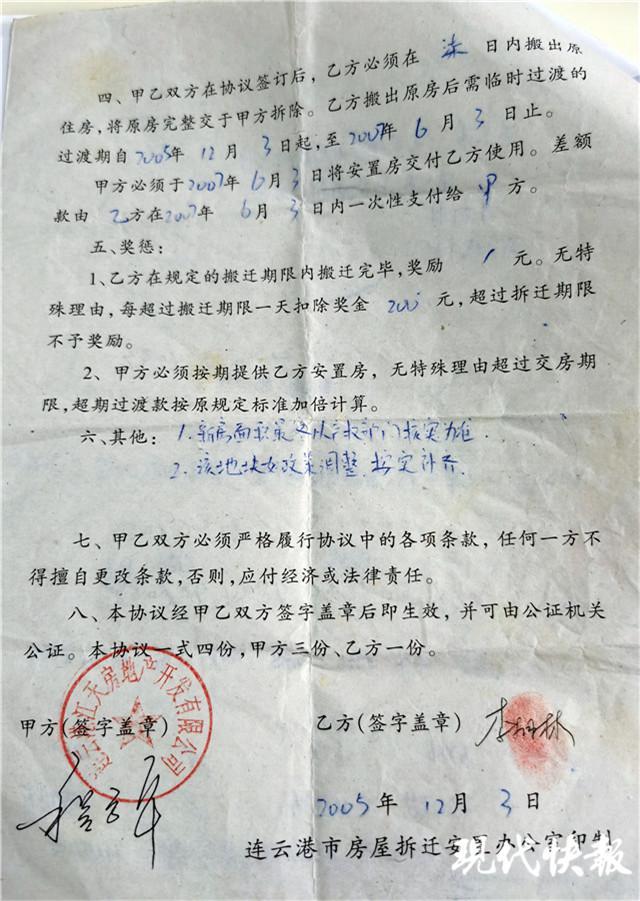 四、甲乙双方在协议签订后，乙方必须在 柒 日内搬出原
住房，将原房完整交于甲方拆除。乙方搬出原房后需临时过渡的
过渡期自 2005年 12 月 3 日起，至 2007年 6 月 3 日止。
甲方必须于 2007年 6月 3 日将安置房交付乙方使用。差额
款由 乙方在2007年 6月 3 日内一次性支付给 甲 方。
五、奖惩：
1、乙方在规定的搬迁期限内搬迁完毕，奖励 / 元。无特
殊理由，每超过搬迁期限一天扣除奖金 200 元，超过拆迁期限
不予奖励。
2、甲方必须按期提供乙方安置房，无特殊理由超过交房期
限，超期过渡款按原规定标准加倍计算。
六、其他：1. 新房面积最终以产权部门核实为准.
2. 该地块如政策调整，按实补齐.
七、甲乙双方必须严格履行协议中的各项条款，任何一方不
得擅自更改条款，否则，应付经济或法律责任。
八、本协议经甲乙双方签字盖章后即生效，并可由公证机关
公证。本协议一式四份，甲方三份、乙方一份。
江天房地产开发有限公司
甲方(签字盖章) 乙方(签字盖章) 李 林
2005 年 12 月 3 日
连云港市房屋拆迁安置办公室印制
现代快报